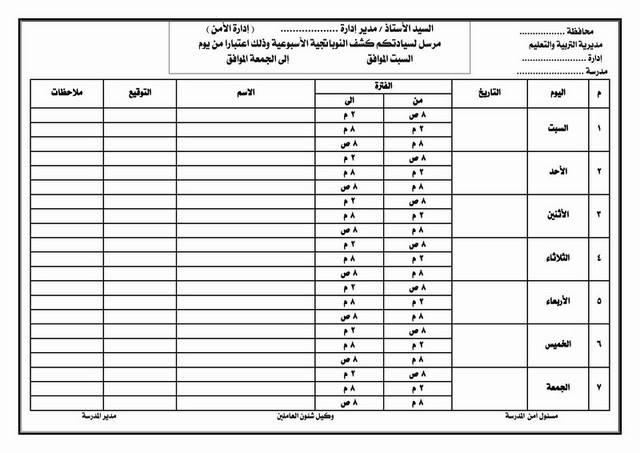 محافظة ..................
مديرية التربية والتعليم
إدارة ..........................
مدرسة ..........................
السيد الأستاذ / مدير إدارة .................... ( إدارة الأمن )
مرسل لسيادتكم كشف النوباتجية الأسبوعية وذلك اعتبارا من يوم
السبت الموافق إلى الجمعة الموافق
م اليوم التاريخ الفترة الاسم التوقيع ملاحظات
من الى
١ السبت ٨ ص ٢ م
٢ م ٨ م
٨ م ٨ ص
٢ الأحد ٨ ص ٢ م
٢ م ٨ م
٨ م ٨ ص
٣ الأثنين ٨ ص ٢ م
٢ م ٨ م
٨ م ٨ ص
٤ الثلاثاء ٨ ص ٢ م
٢ م ٨ م
٨ م ٨ ص
٥ الأربعاء ٨ ص ٢ م
٢ م ٨ م
٨ م ٨ ص
٦ الخميس ٨ ص ٢ م
٢ م ٨ م
٨ م ٨ ص
٧ الجمعة ٨ ص ٢ م
٢ م ٨ م
٨ م ٨ ص
مسئول امن المدرسة وكيل شئون العاملين مدير المدرسة